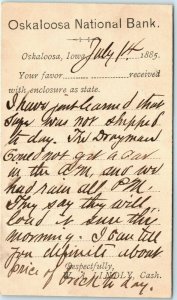 Oskaloosa National Bank.
Oskaloosa, Iowa, July 14 1885.
Your favor received
with enclosure as stated.
I have just learned that
was not shipped
to day. The Drayman
Could not get a Car
in the A.M. and we
had rain all P.M.
They say they will
load it sure this
morning. I can tell
you definite about
price of Brick to day.
Respectfully,
LINDLY, Cash.